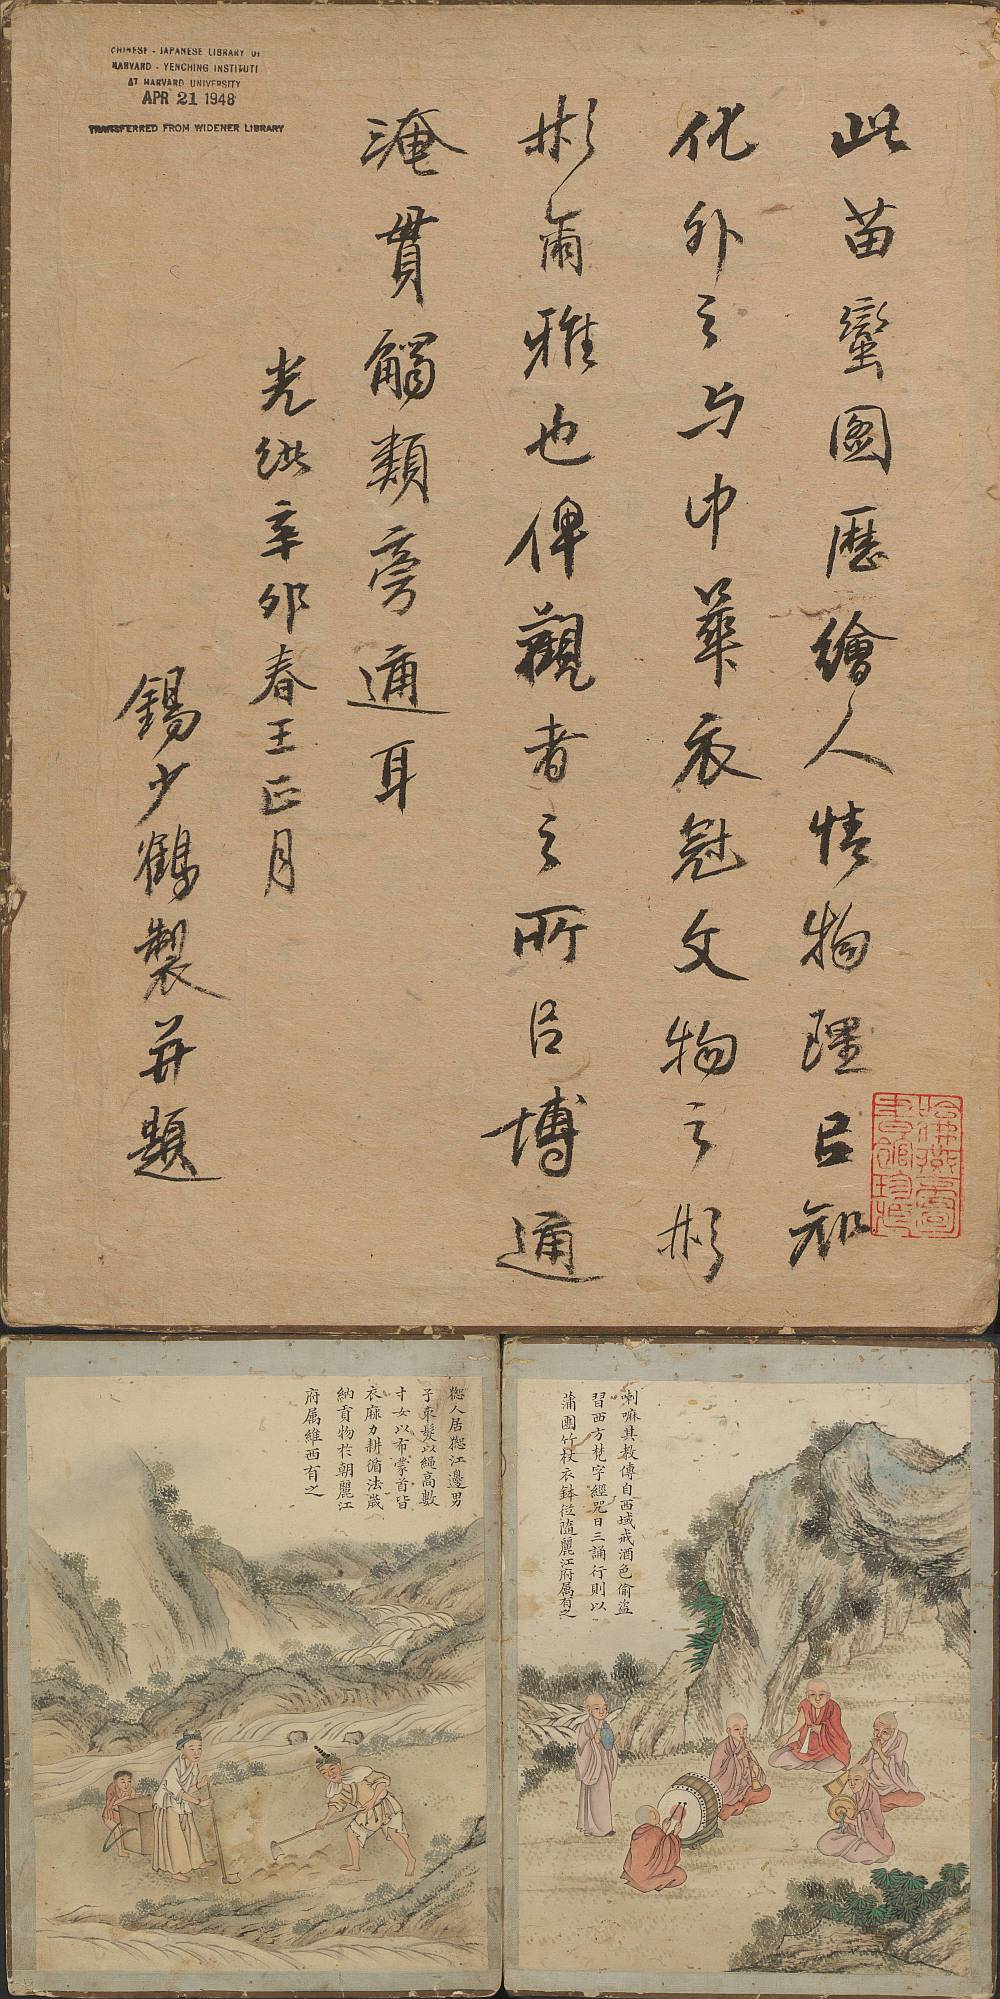 CHINESE - JAPANESE LIBRARY OF
HARVARD - YENCHING INSTITUTE
AT HARVARD UNIVERSITY
APR 21 1948
TRANSFERRED FROM WIDENER LIBRARY
此苗蠻圖歷繪人情物理㠯知
化外之与中華衣冠文物之彬
彬爾雅也俾觀者之所㠯博通
淹貫觸類旁通耳
光緒辛卯春王正月
錫少鶴製并題
哈佛燕京圖
書館珍藏
喇嘛其教傳自西域戒酒色偷盗
習西方梵字經咒日三誦行則以
蒲團竹杖衣鉢從隨麗江府属有之
㺄人居㺄江邊男
子束髮以繩高數
寸女以布蒙首皆
衣麻力耕循法歲
納貢物於朝麗江
府属維西有之